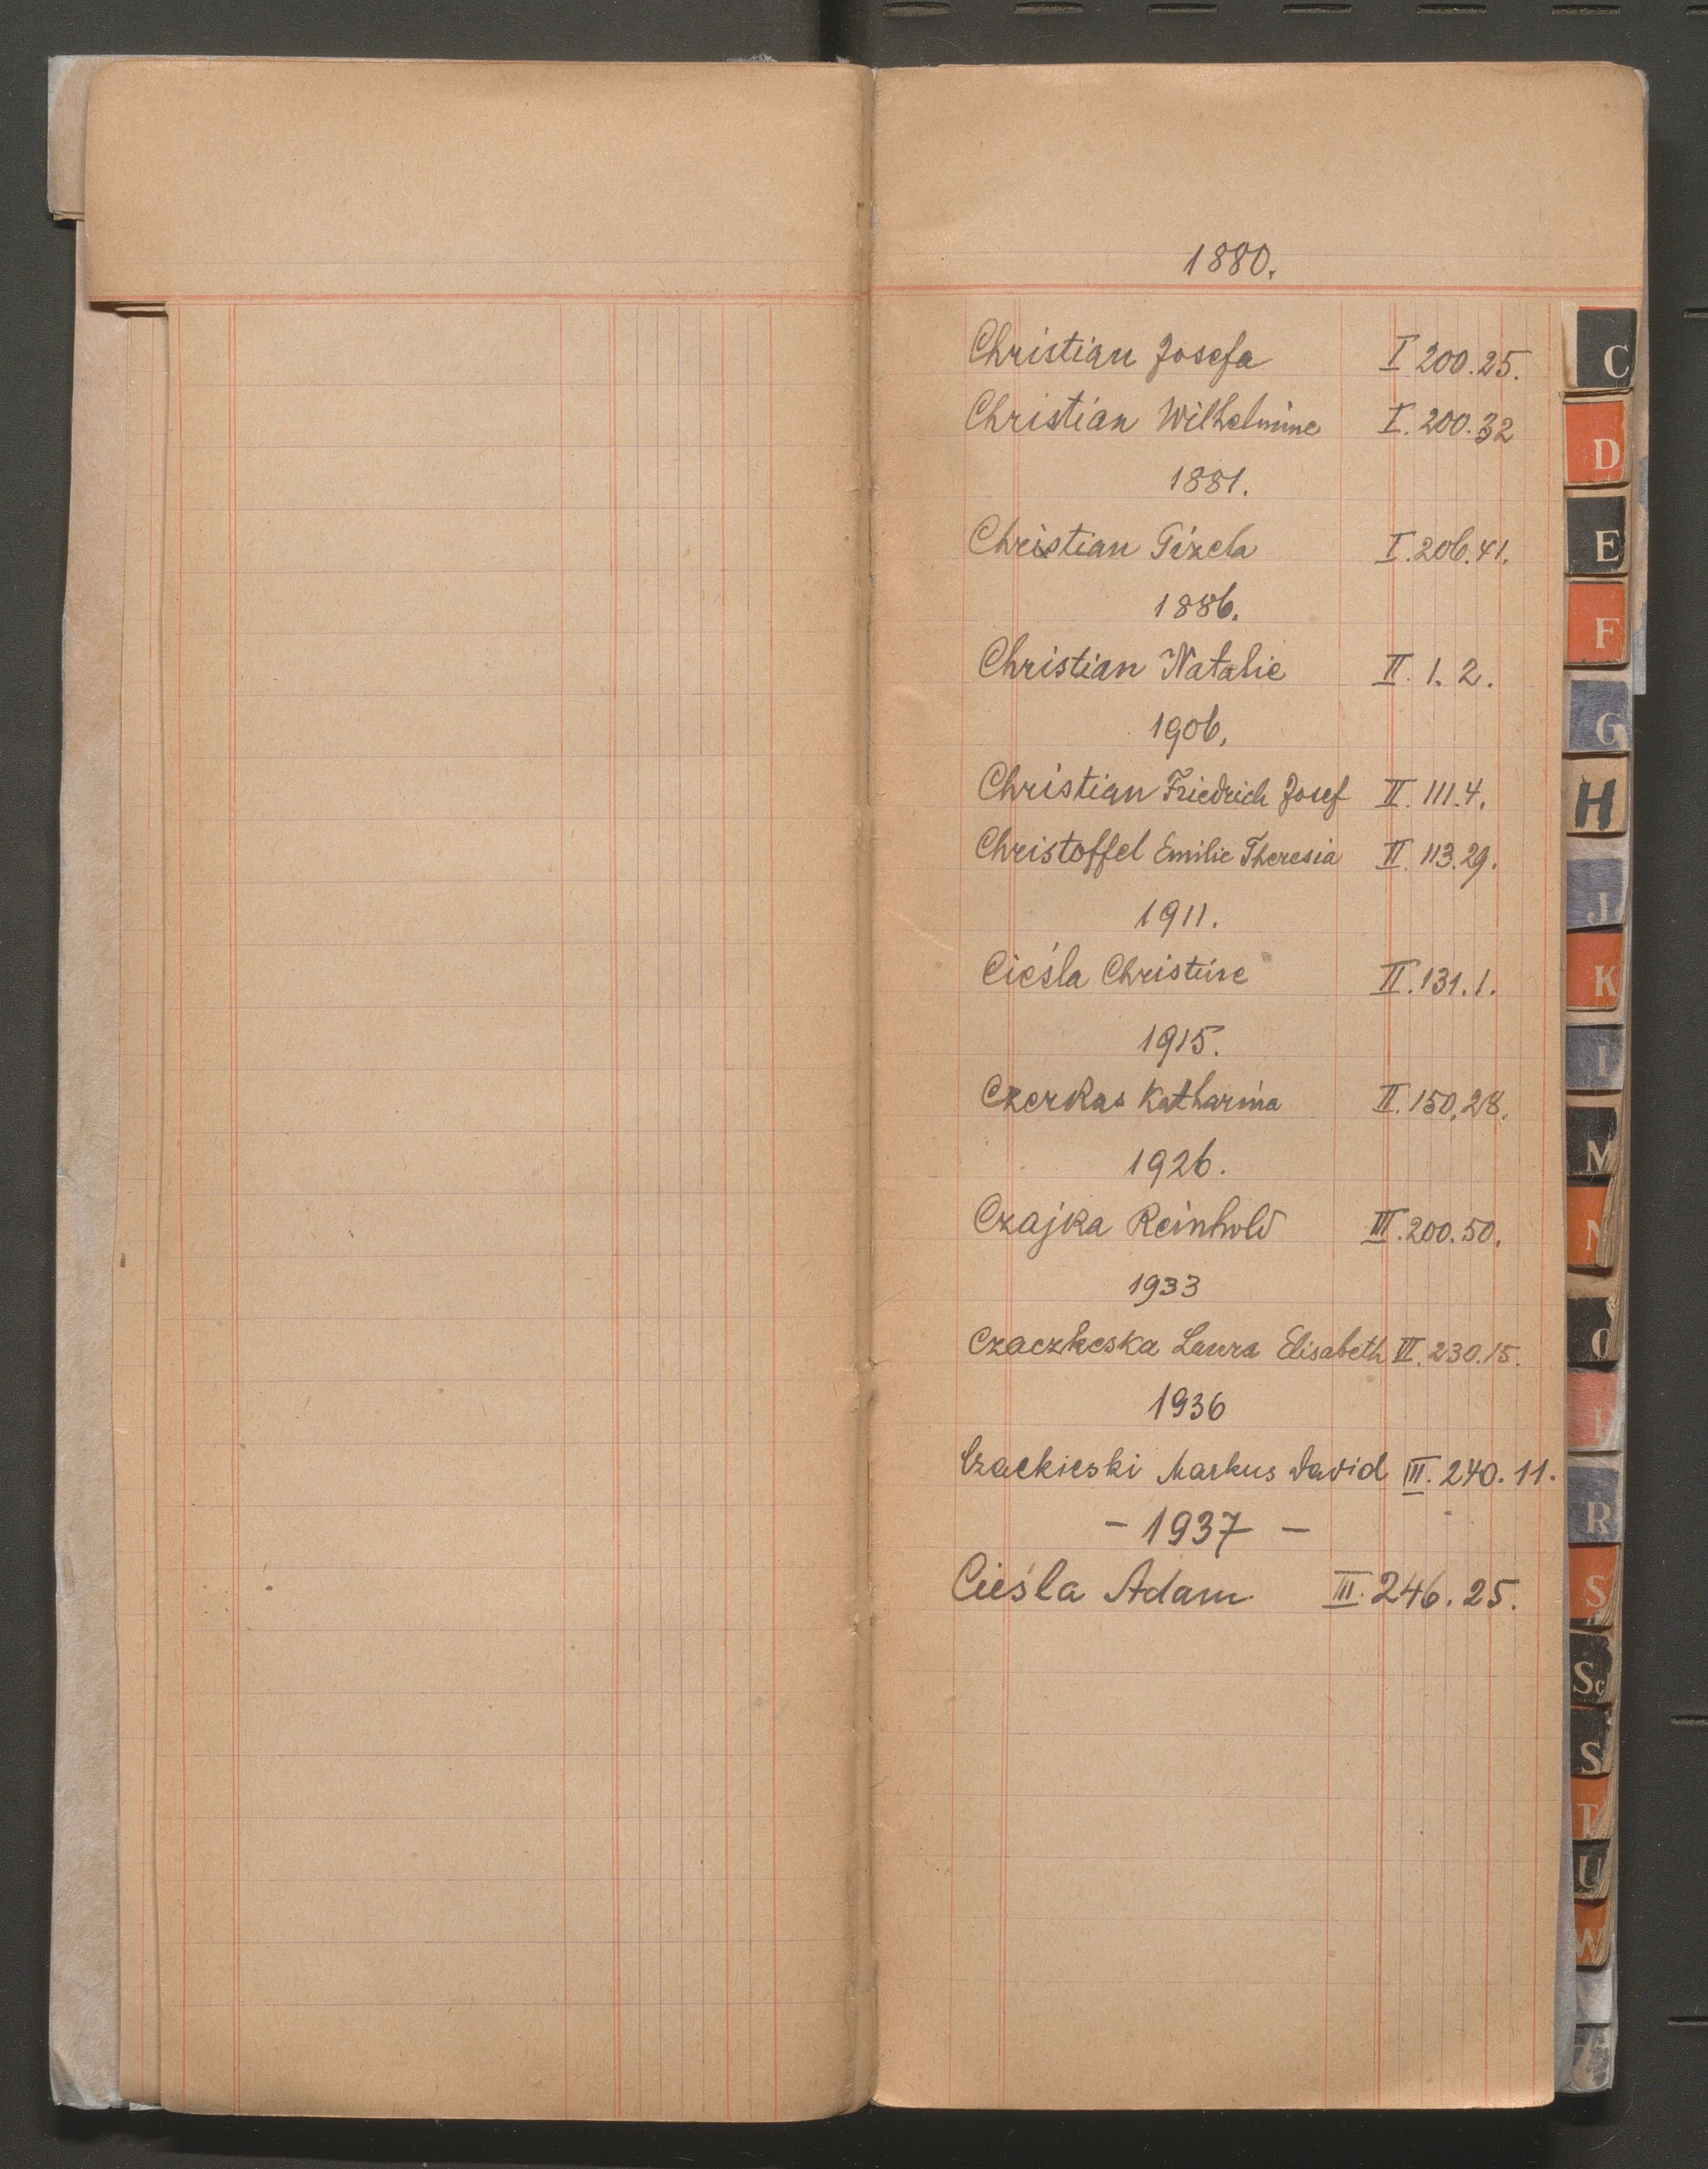 1880.
Christian Josefa I 200.25.
Christian Wilhelmine I. 200.32
1881.
Christian Gizela I. 206.41.
1886.
Christian Natalie II. 1. 2.
1906.
Christian Friedrich Josef II. 111.4.
Christoffel Emilie Theresia II. 113.29.
1911.
Cieśla Christine II. 131.1.
1915.
Czerkas Katharina II. 150.28.
1926.
Czajka Reinhold III. 200.50.
1933
Laura Elisabeth III. 230.15.
1936
Markus David III. 240. 11.
- 1937 -
Cieśla Adam III. 246. 25.
C
D
E
F
G
H
J
K
M
N
O
R
S
Sc
S
T
U
W